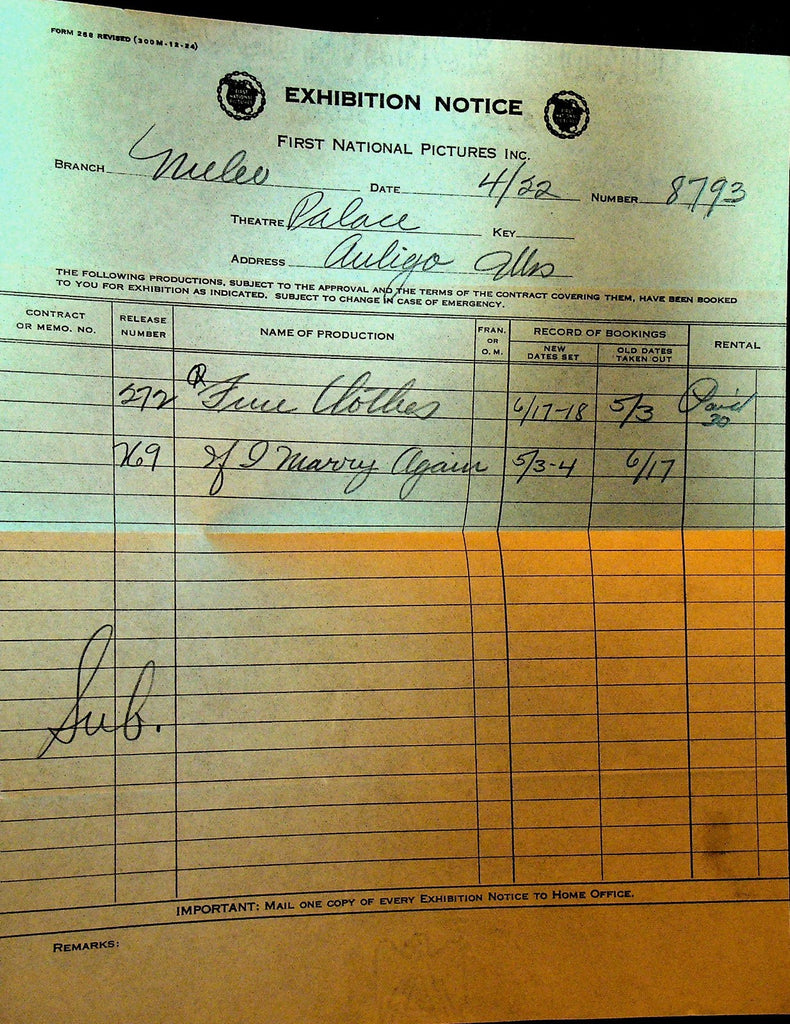 FORM 268 REVISED (300M-12-24)
EXHIBITION NOTICE
FIRST NATIONAL PICTURES INC.
BRANCH DATE 4/22 NUMBER 8793
THEATRE Palace KEY
ADDRESS Antigo Wis
THE FOLLOWING PRODUCTIONS, SUBJECT TO THE APPROVAL AND THE TERMS OF THE CONTRACT COVERING THEM, HAVE BEEN BOOKED
TO YOU FOR EXHIBITION AS INDICATED. SUBJECT TO CHANGE IN CASE OF EMERGENCY.
CONTRACT OR MEMO. NO. RELEASE NUMBER NAME OF PRODUCTION FRAN. OR O.M. RECORD OF BOOKINGS NEW DATES SET OLD DATES TAKEN OUT RENTAL
272 R Fine Clothes 6/17-18 5/3 Paid 30
269 If I Marry Again 5/3-4 6/17
Sub.
IMPORTANT: MAIL ONE COPY OF EVERY EXHIBITION NOTICE TO HOME OFFICE.
REMARKS: